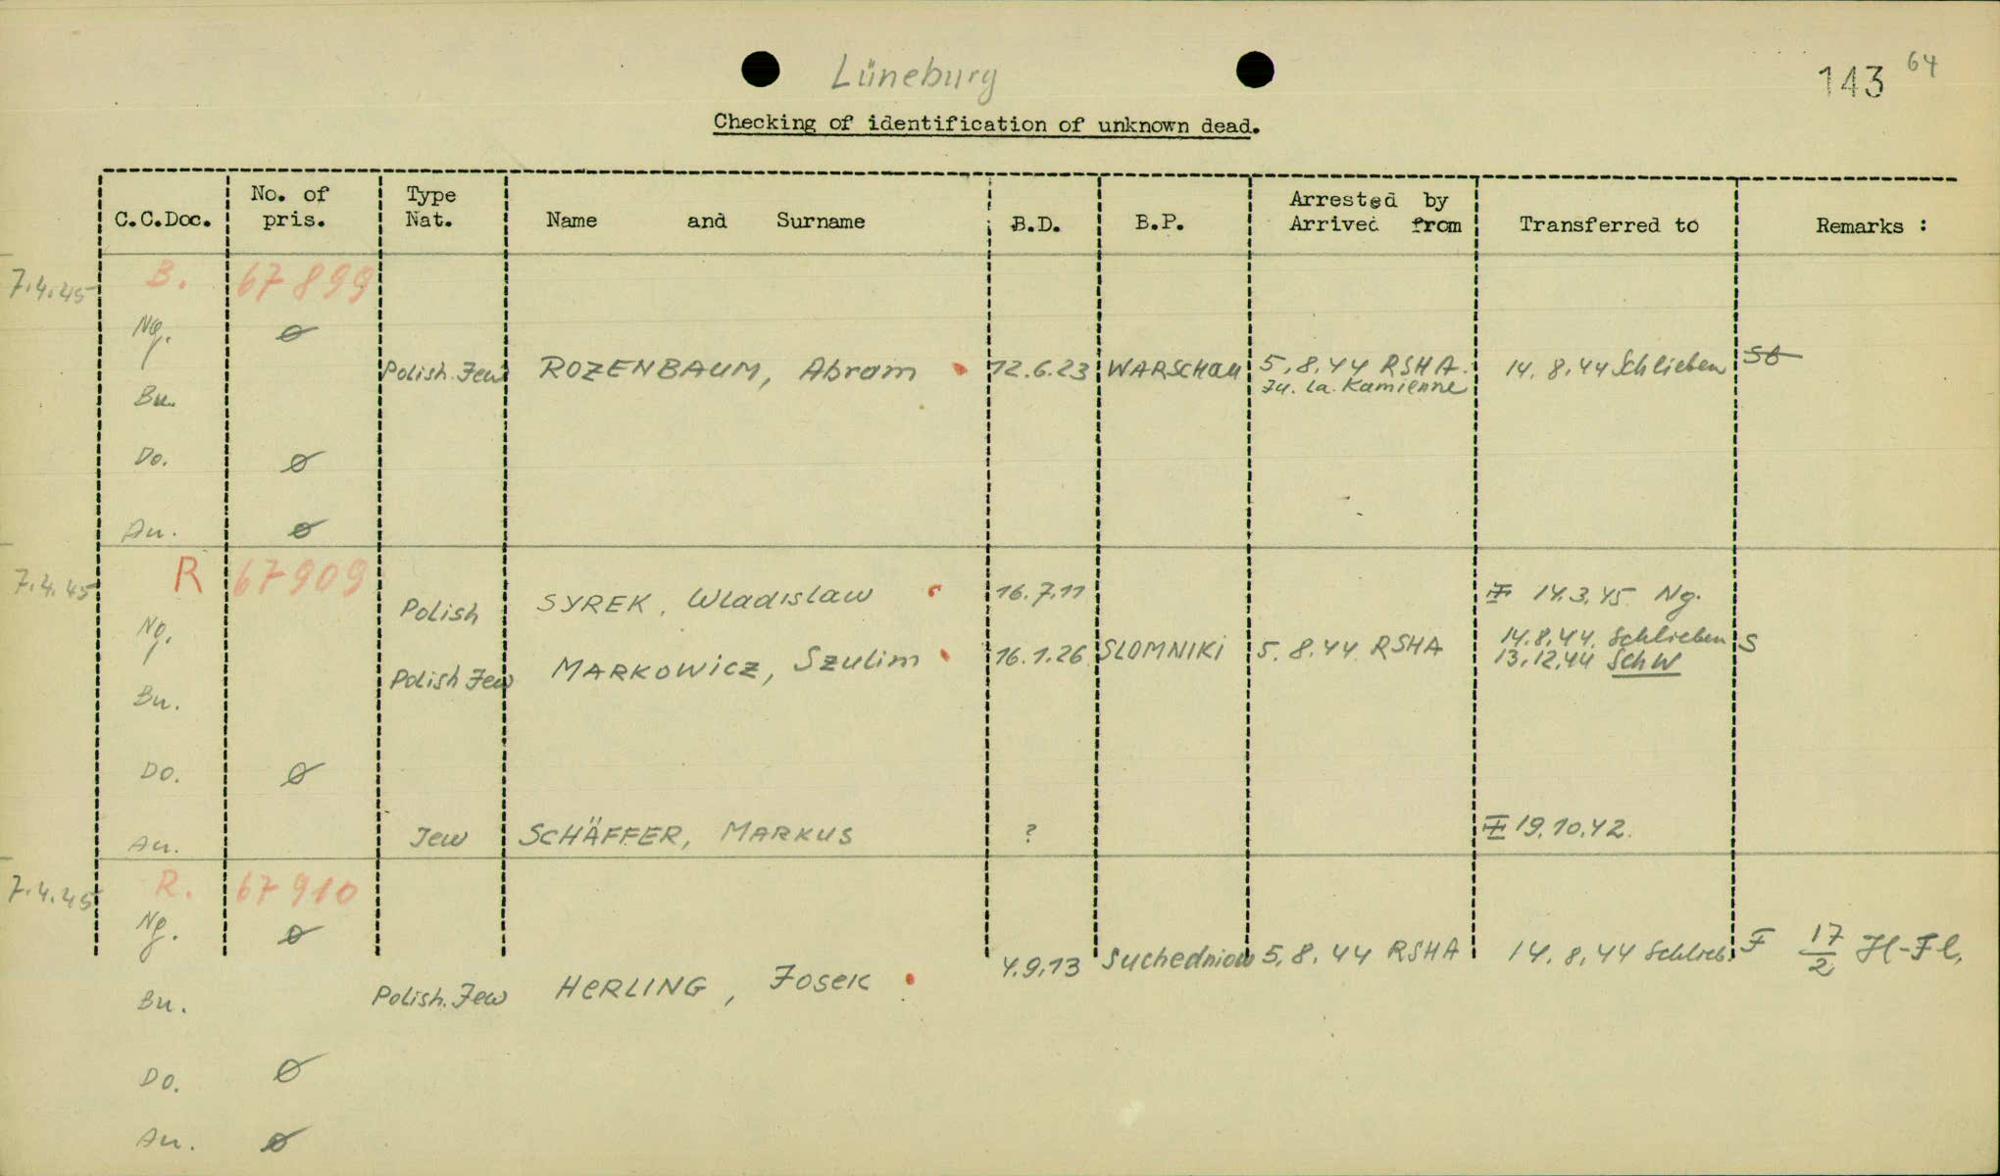 Lüneburg
143 64
Checking of identification of unknown dead.
C.C.Doc. No. of pris. Type Nat. Name and Surname B.D. B.P. Arrested by Arrived from Transferred to Remarks :
7.4.45 B. 67899
Ng. ø
Polish Jew ROZENBAUM, Abram 12.6.23 WARSCHAU 5.8.44 RSHA. 14.8.44 Schlieben
Ju. La. Kamienne
Bu.
Do. ø
Au. ø
7.4.45 R 67909
Polish SYREK, Wladislaw 16.7.11 14.3.45 Ng.
Ng.
Polish Jew MARKOWICZ, Szulim 16.1.26 SLOMNIKI 5.8.44 RSHA 14.8.44 Schlieben S
13.12.44 SchW
Bu.
Do. ø
Au. Jew SCHÄFFER, MARKUS ? 19.10.42.
7.4.45 R. 67910
Ng. ø
Bu. Polish. Jew HERLING, Josek 4.9.13 Suchedniow 5.8.44 RSHA 14.8.44 Schlieb. F 17/2 Hl-Fl.
Do. ø
Au. ø